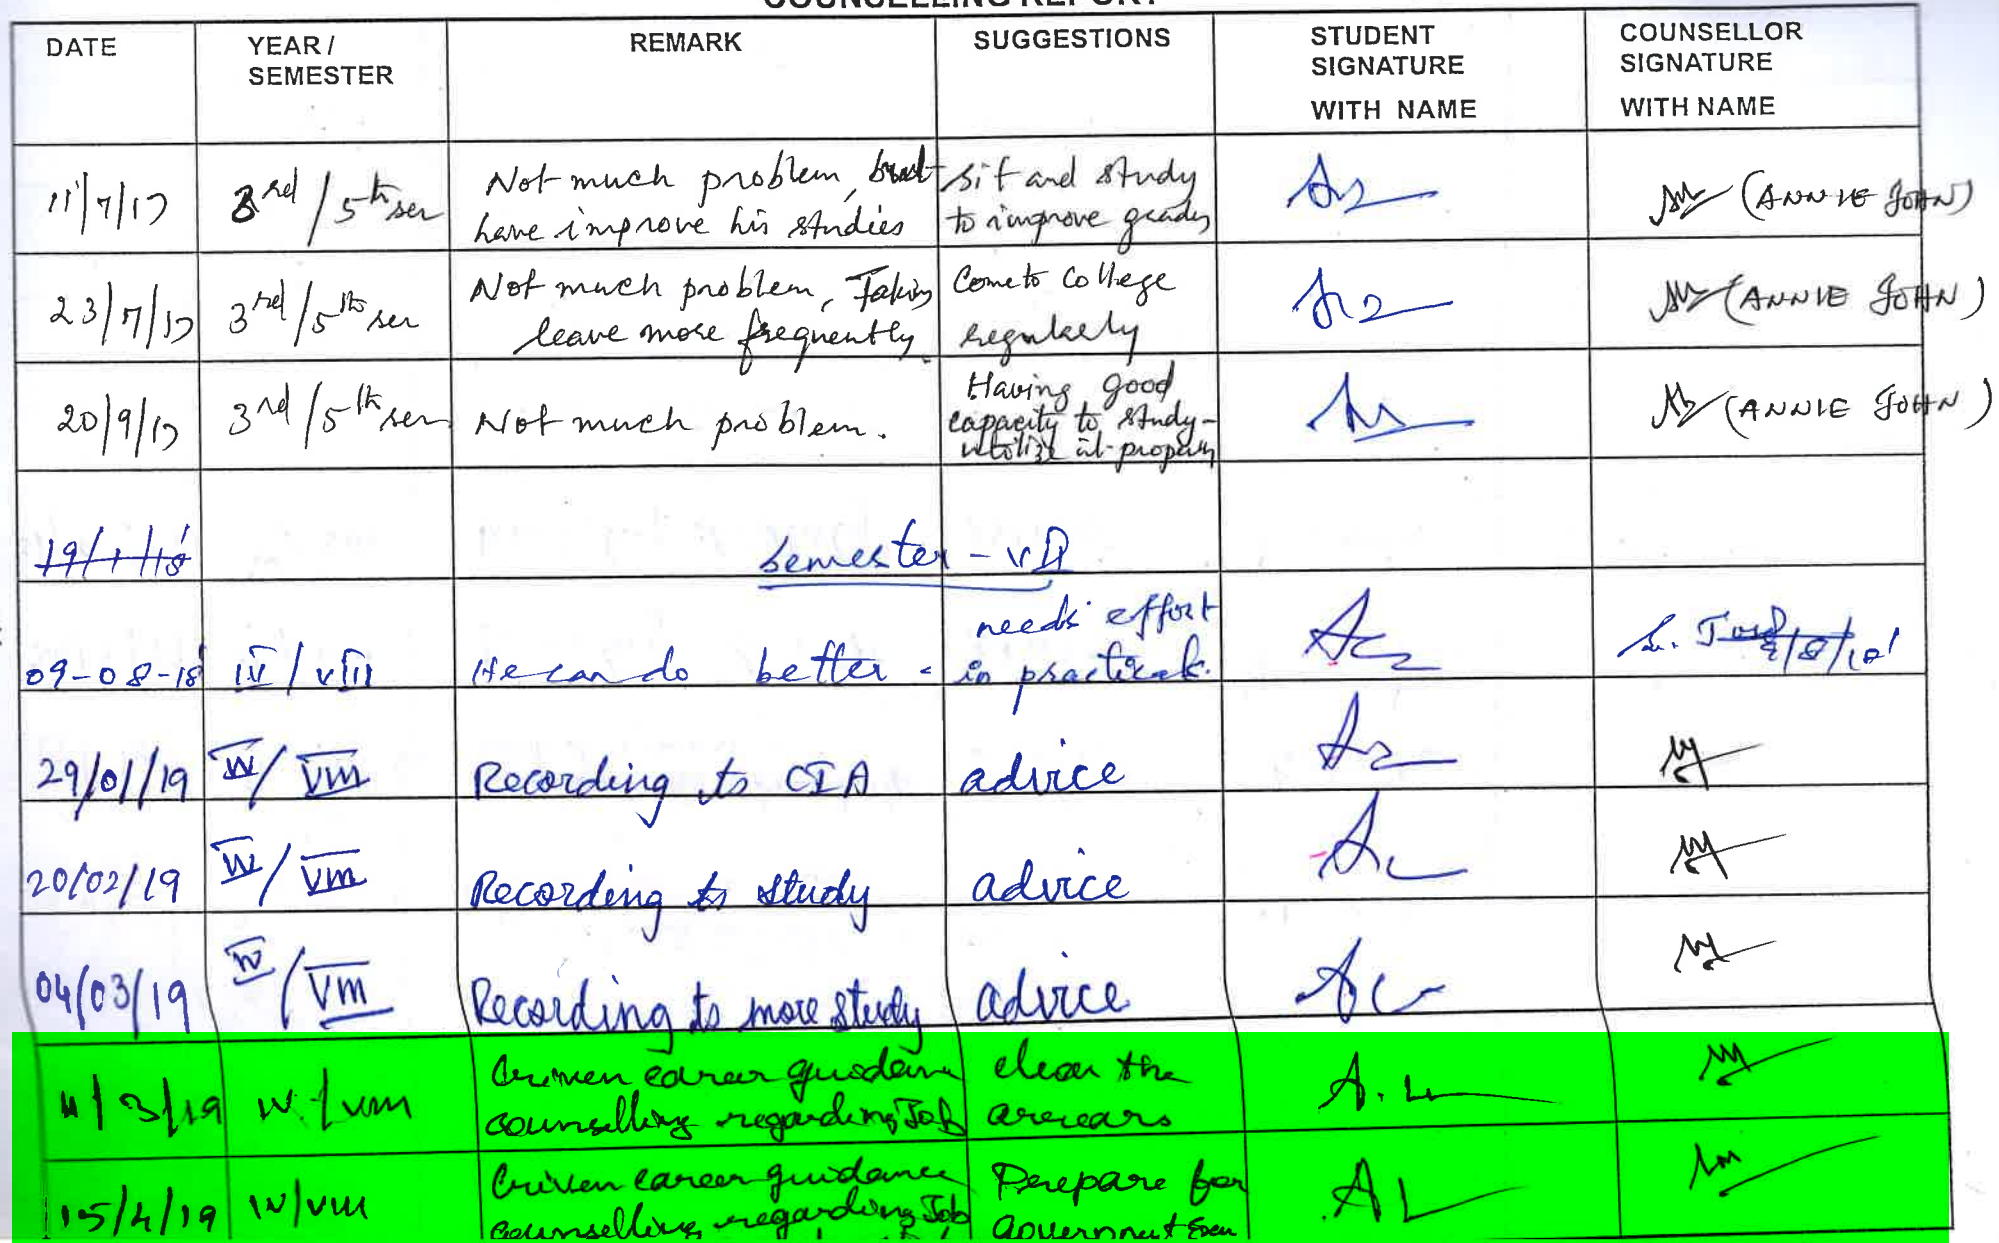 COUNSELLING REPORT
DATE YEAR / SEMESTER REMARK SUGGESTIONS STUDENT SIGNATURE WITH NAME COUNSELLOR SIGNATURE WITH NAME
11/7/17 3rd / 5th sem Not much problem, but sit and study
have improve his studies to improve grades (ANNIE JOHN)
23/7/17 3rd/5th sem Not much problem, Taking Come to College
leave more frequently. regularly (ANNIE JOHN)
20/9/17 3rd/5th sem Not much problem. Having good
capacity to study-
utilize it properly (ANNIE JOHN)
19/1/18
Semester - VII
09-08-18 IV / VII He can do better. needs effort
in practicals.
29/01/19 IV/VIII Recording to CIA advice
20/02/19 IV/VIII Recording to study advice
04/03/19 IV/VIII Recording to more study advice
11/3/19 IV/VIII Given career guidance clear the
counselling regarding Job arrears
15/4/19 IV/VIII Given career guidance Prepare for
counselling regarding Job Government Exam